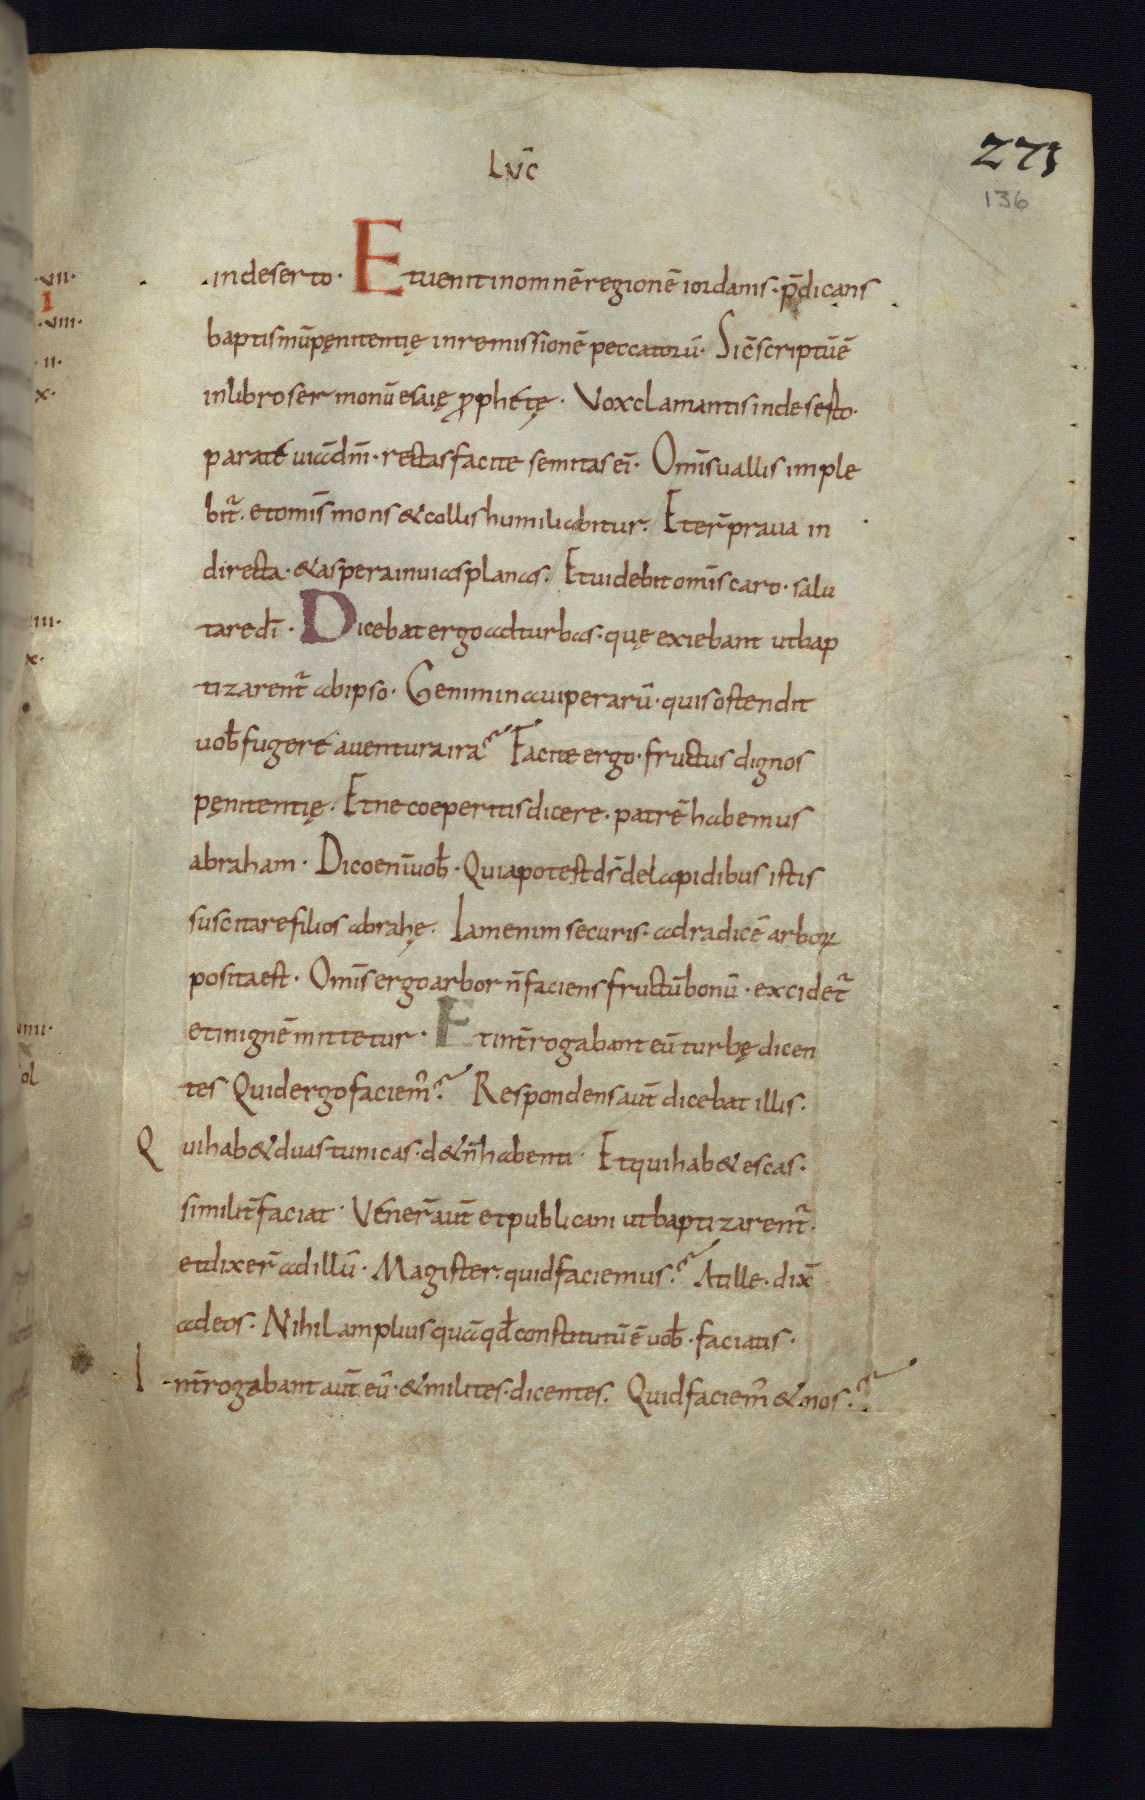 LVC̄
271
136
in deserto. Et uenit in omnē regionē iordanis. p̄dicans
baptismū pęnitentię in remissionē peccatorū. Sic̄ scriptū ē
in libro sermonū esaię ꝓphetę. Vox clamantis in deserto.
parate uiā dn̄i. rectas facite semitas ei᷒. Om̄is uallis imple
bit᷑. et om̄is mons & collis humiliabitur. Et er̄ praua in
directa. & aspera in uias planas. Et uidebit om̄is caro. salu
tare dī. Dicebat ergo ad turbas. quę exiebant ut bap
tizarent᷑ ab ipso. Genimina uiperarū. quis ostendit
uob̄ fugere a uentura ira? Facite ergo. fructus dignos
pęnitentię. Et ne coeperitis dicere. patrē habemus
abraham. Dico enī uob̄. Quia potest ds̄ de lapidibus istis
suscitare filios abrahę. Iam enim securis. ad radicē arboꝝ
posita est. Om̄is ergo arbor n̄ faciens fructū bonū. excidet᷑
et in ignē mittetur. Et int̄rogabant eū turbę dicen
tes Quid ergo faciem᷒? Respondens aut̄ dicebat illis.
Qui hab& duas tunicas. d& n̄ habenti. Et qui hab& escas.
similit̄ faciat. Vener̄ aut̄ et publicani ut baptizarent᷑.
et dixer̄ ad illū. Magister. quid faciemus? At ille. dix̄
ad eos. Nihil amplius quā qd̄ constitutū ē uob̄. faciatis.
Int̄rogabant aut̄ eū. & milites. dicentes. Quid faciem᷒ & nos?